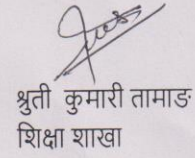 श्रुती कुमारी तामाङ
शिक्षा शाखा